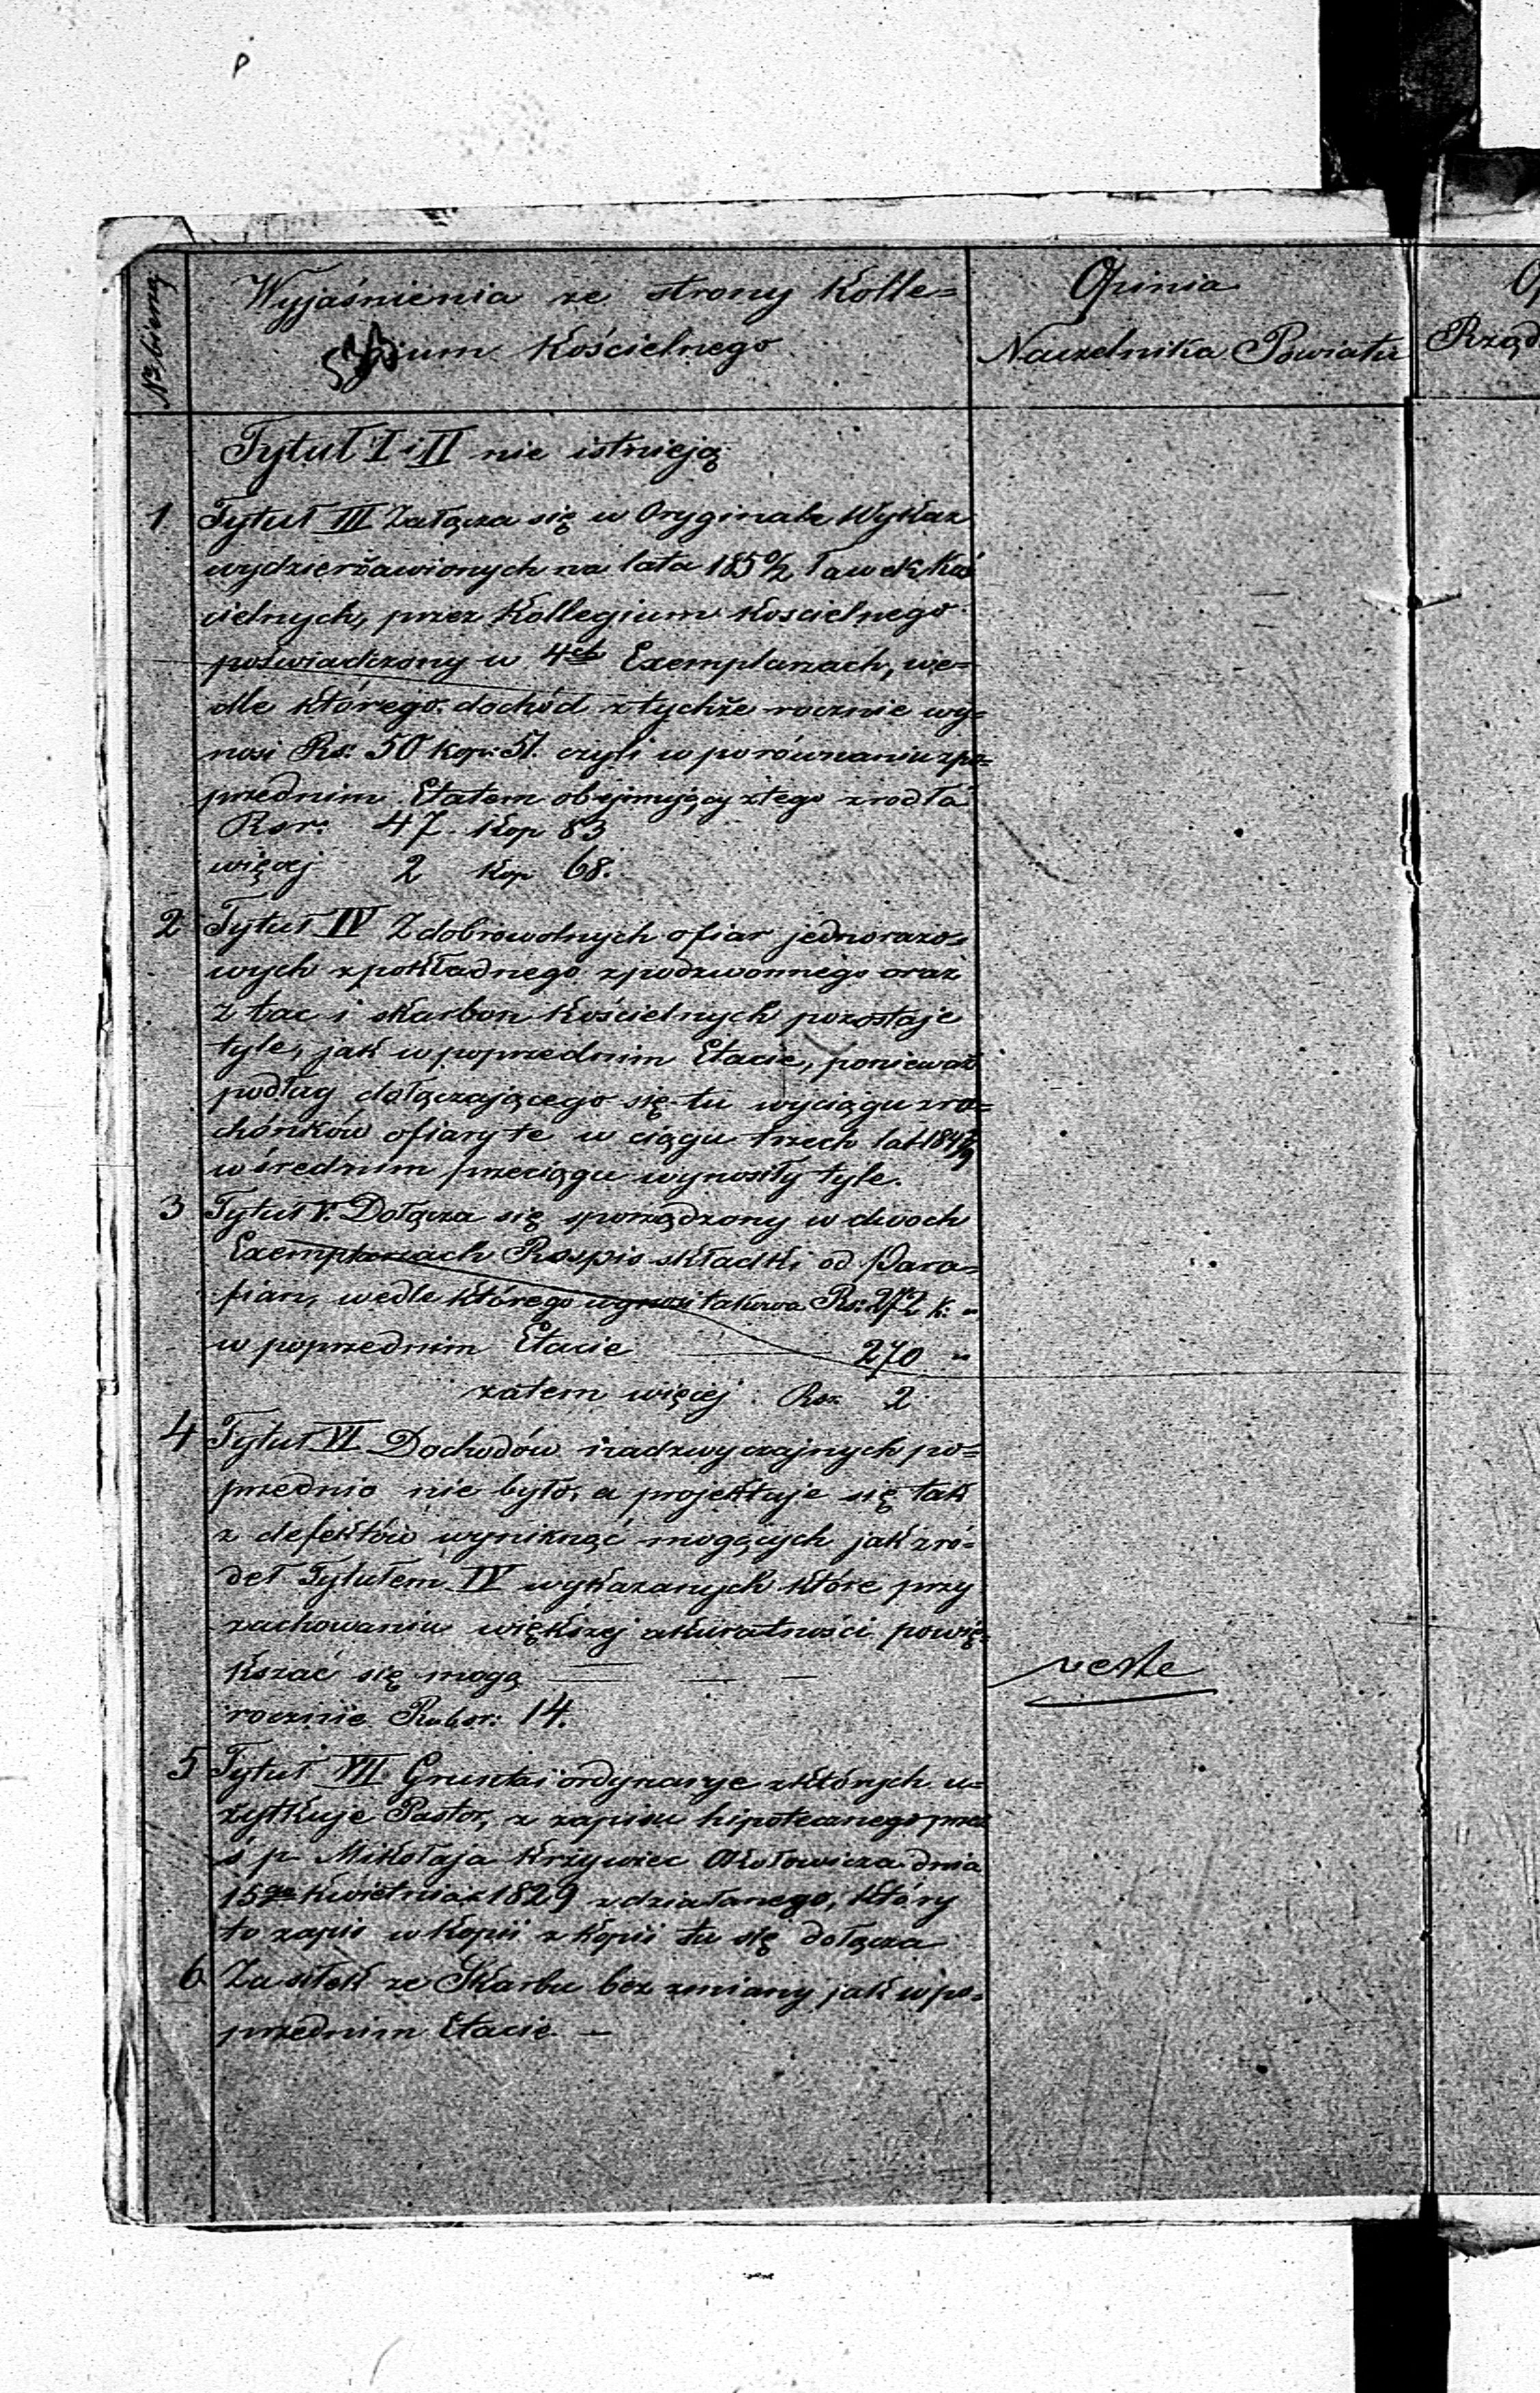 № bieżący
Wyjaśnienia ze strony Kolle=
gium Kościelnego
Opinia
Naczelnika Powiatu
Rząd
Tytuł I i II nie istnieją
1 Tytuł III Załącza się w Oryginale Wykaz
wydzierżawionych na lata 185 0/2 ławek Koś
cielnych, przez Kollegium Koscielnego
poświadczony w 4ch Exemplarzach, we=
dle którego dochód z tychże rocznie wy=
nosi Rs: 50 kop: 51. czyli w porównaniu z po=
przednim Etatem obejmujący z tego zrodła
Rsr: 47 Kop 83
więcej 2 Kop 68.
2 Tytuł IV Z dobrowolnych ofiar jednorazo=
wych z pokładnego z podzwonnego oraz
z tac i skarbon Kościelnych pozostaje
tyle, jak w poprzednim Etacie, ponieważ
podług dołączającego się tu wyciągu z ra=
chónków ofiary te w ciągu trzech lat 184 7/9
w średnim przeciągu wynosiły tyle.
3 Tytuł V. Dołącza się sporządzony w dwoch
Exemplarzach Rospis składki od Para=
fian, wedle którego wynosi takowa Rs: 272 k. "
w poprzednim Etacie 270 "
zatem więcej Rsr. 2
4 Tytuł VI Dochodów nadzwyczajnych po=
przednio nie było, a projektuje się tak
z defektów wyniknąć mogących jak zró=
deł Tytułem IV wykazanych które przy
zachowaniu większej akuratności powię=
kszać się mogą
rocznie Rubsr: 14.
verte
5 Tytuł VII Grunta i ordynarye z których u=
żytkuje Pastor, z zapisu hipotecznego przez
ś p Mikołaja Krzywiec Okołowicza dnia
15go Kwietnia 1829 zdziałanego, który
to zapis w kopii z kopii tu się dołącza
6 Zasiłek ze Skarbu bez zmiany jak w po=
przednim Etacie. –